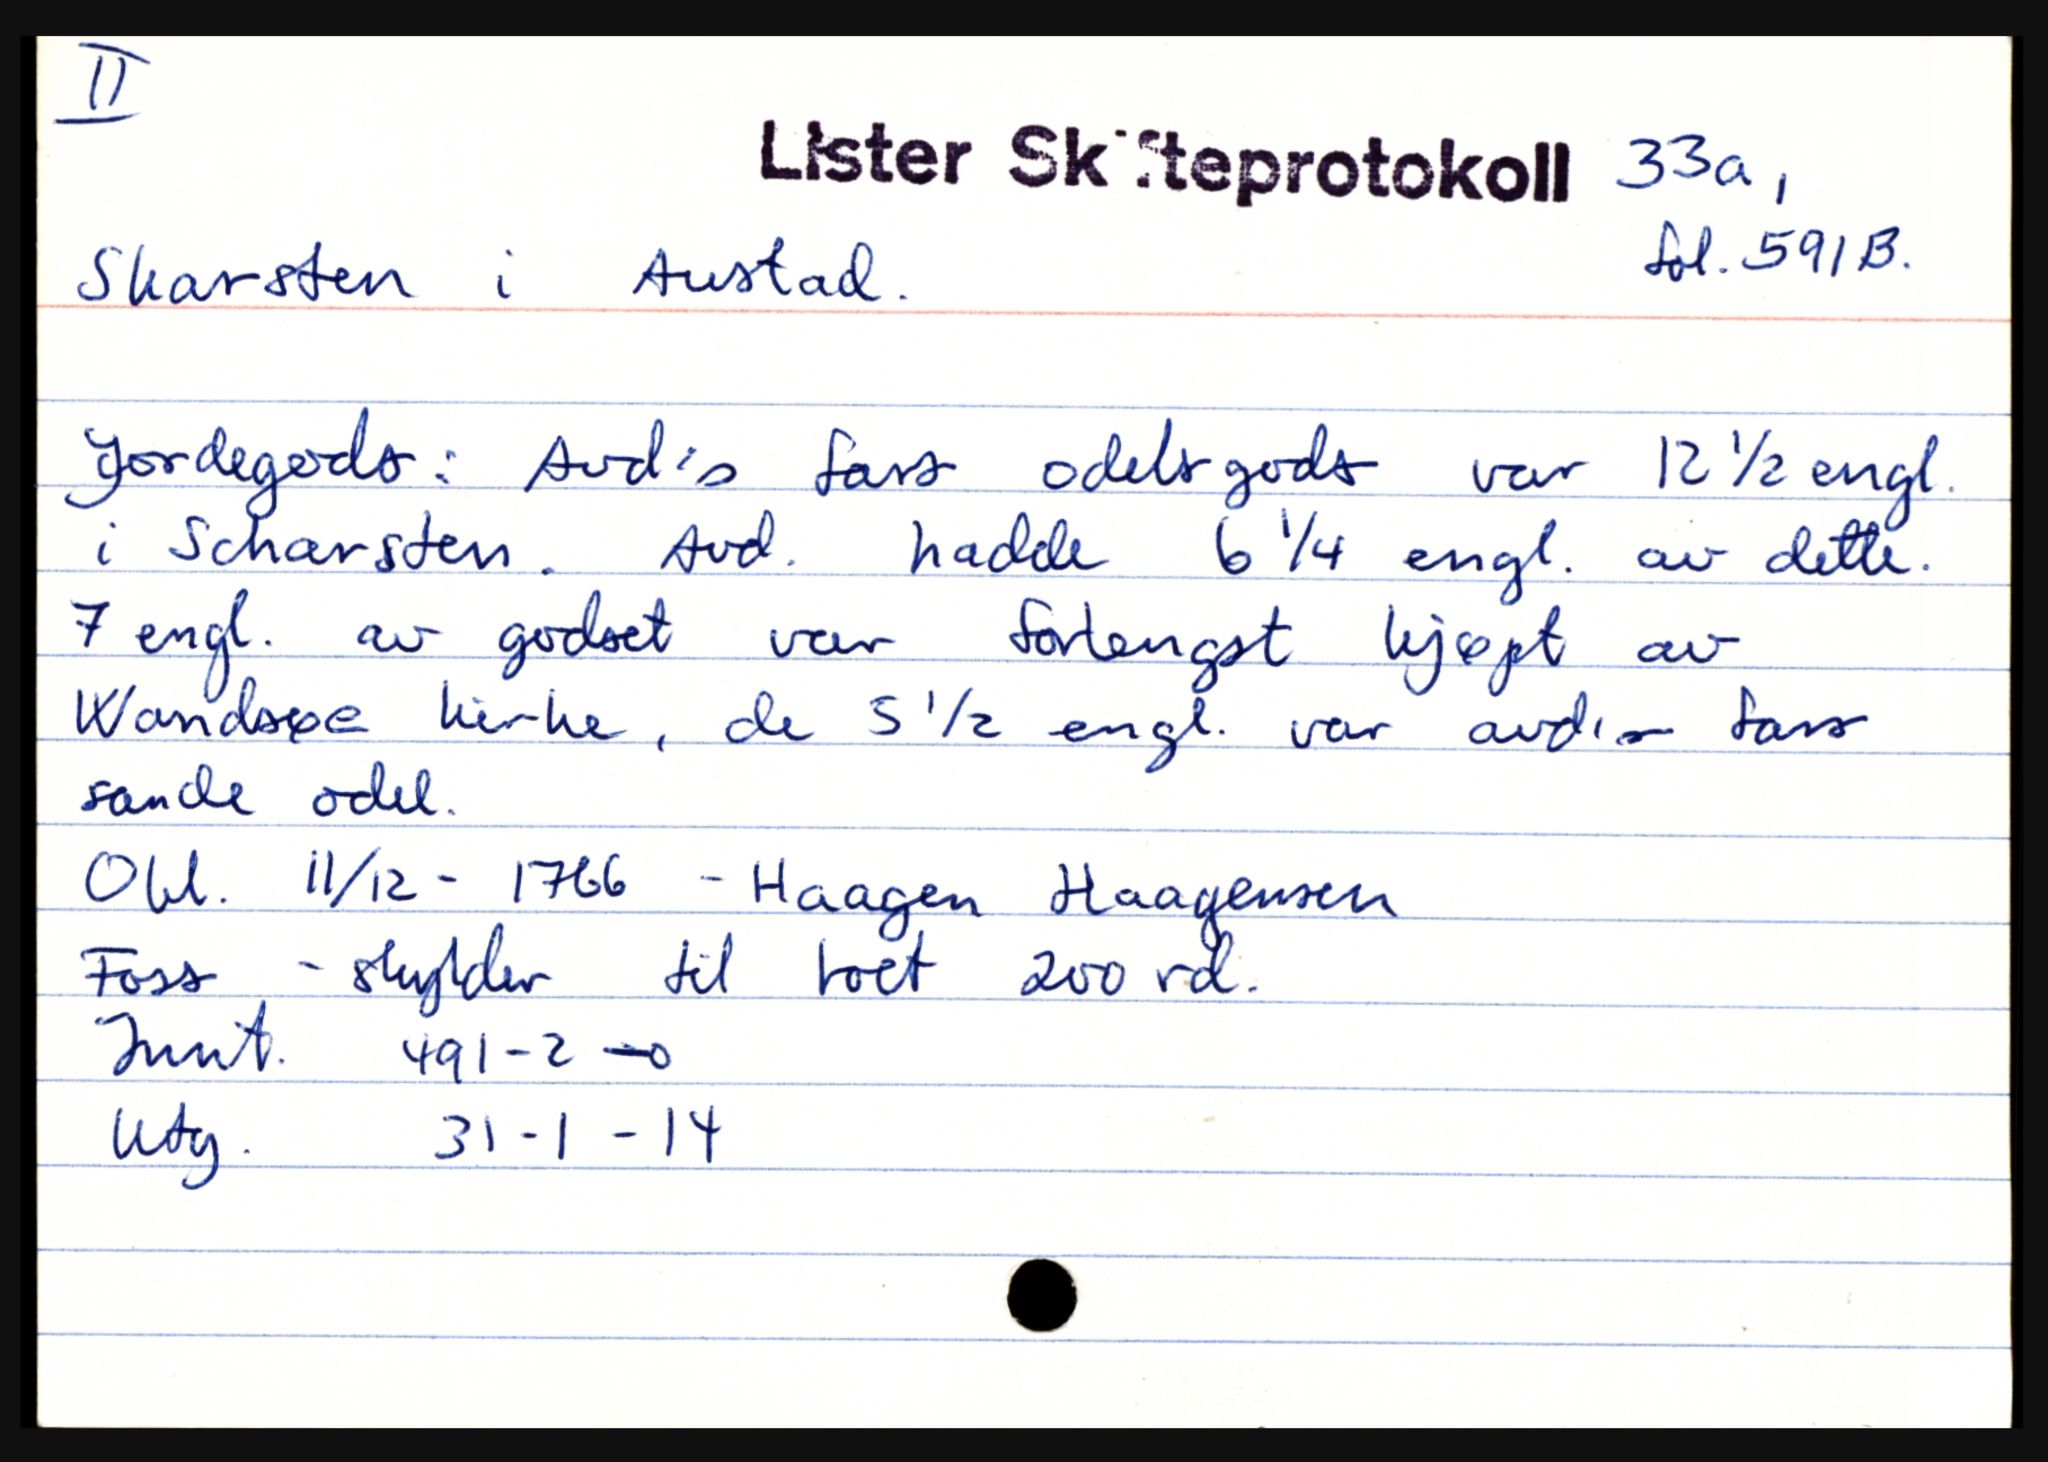 II
Lister Skifteprotokoll 33a,
fol. 591B.
Skarsten i Austad.
Jordegods: Avd's fars odelsgods var 12 1/2 engl.
i Scharsten. Avd. hadde 6 1/4 engl. av dette.
7 engl. av godset var forlengst kjøpt av
Wandsøe kirke, de 5 1/2 engl. var avd's fars
sande odel.
Obl. 11/12 - 1766 - Haagen Haagensen
Foss - skylder til boet 200 rd.
Innt. 491-2-0
Utg. 31-1-14